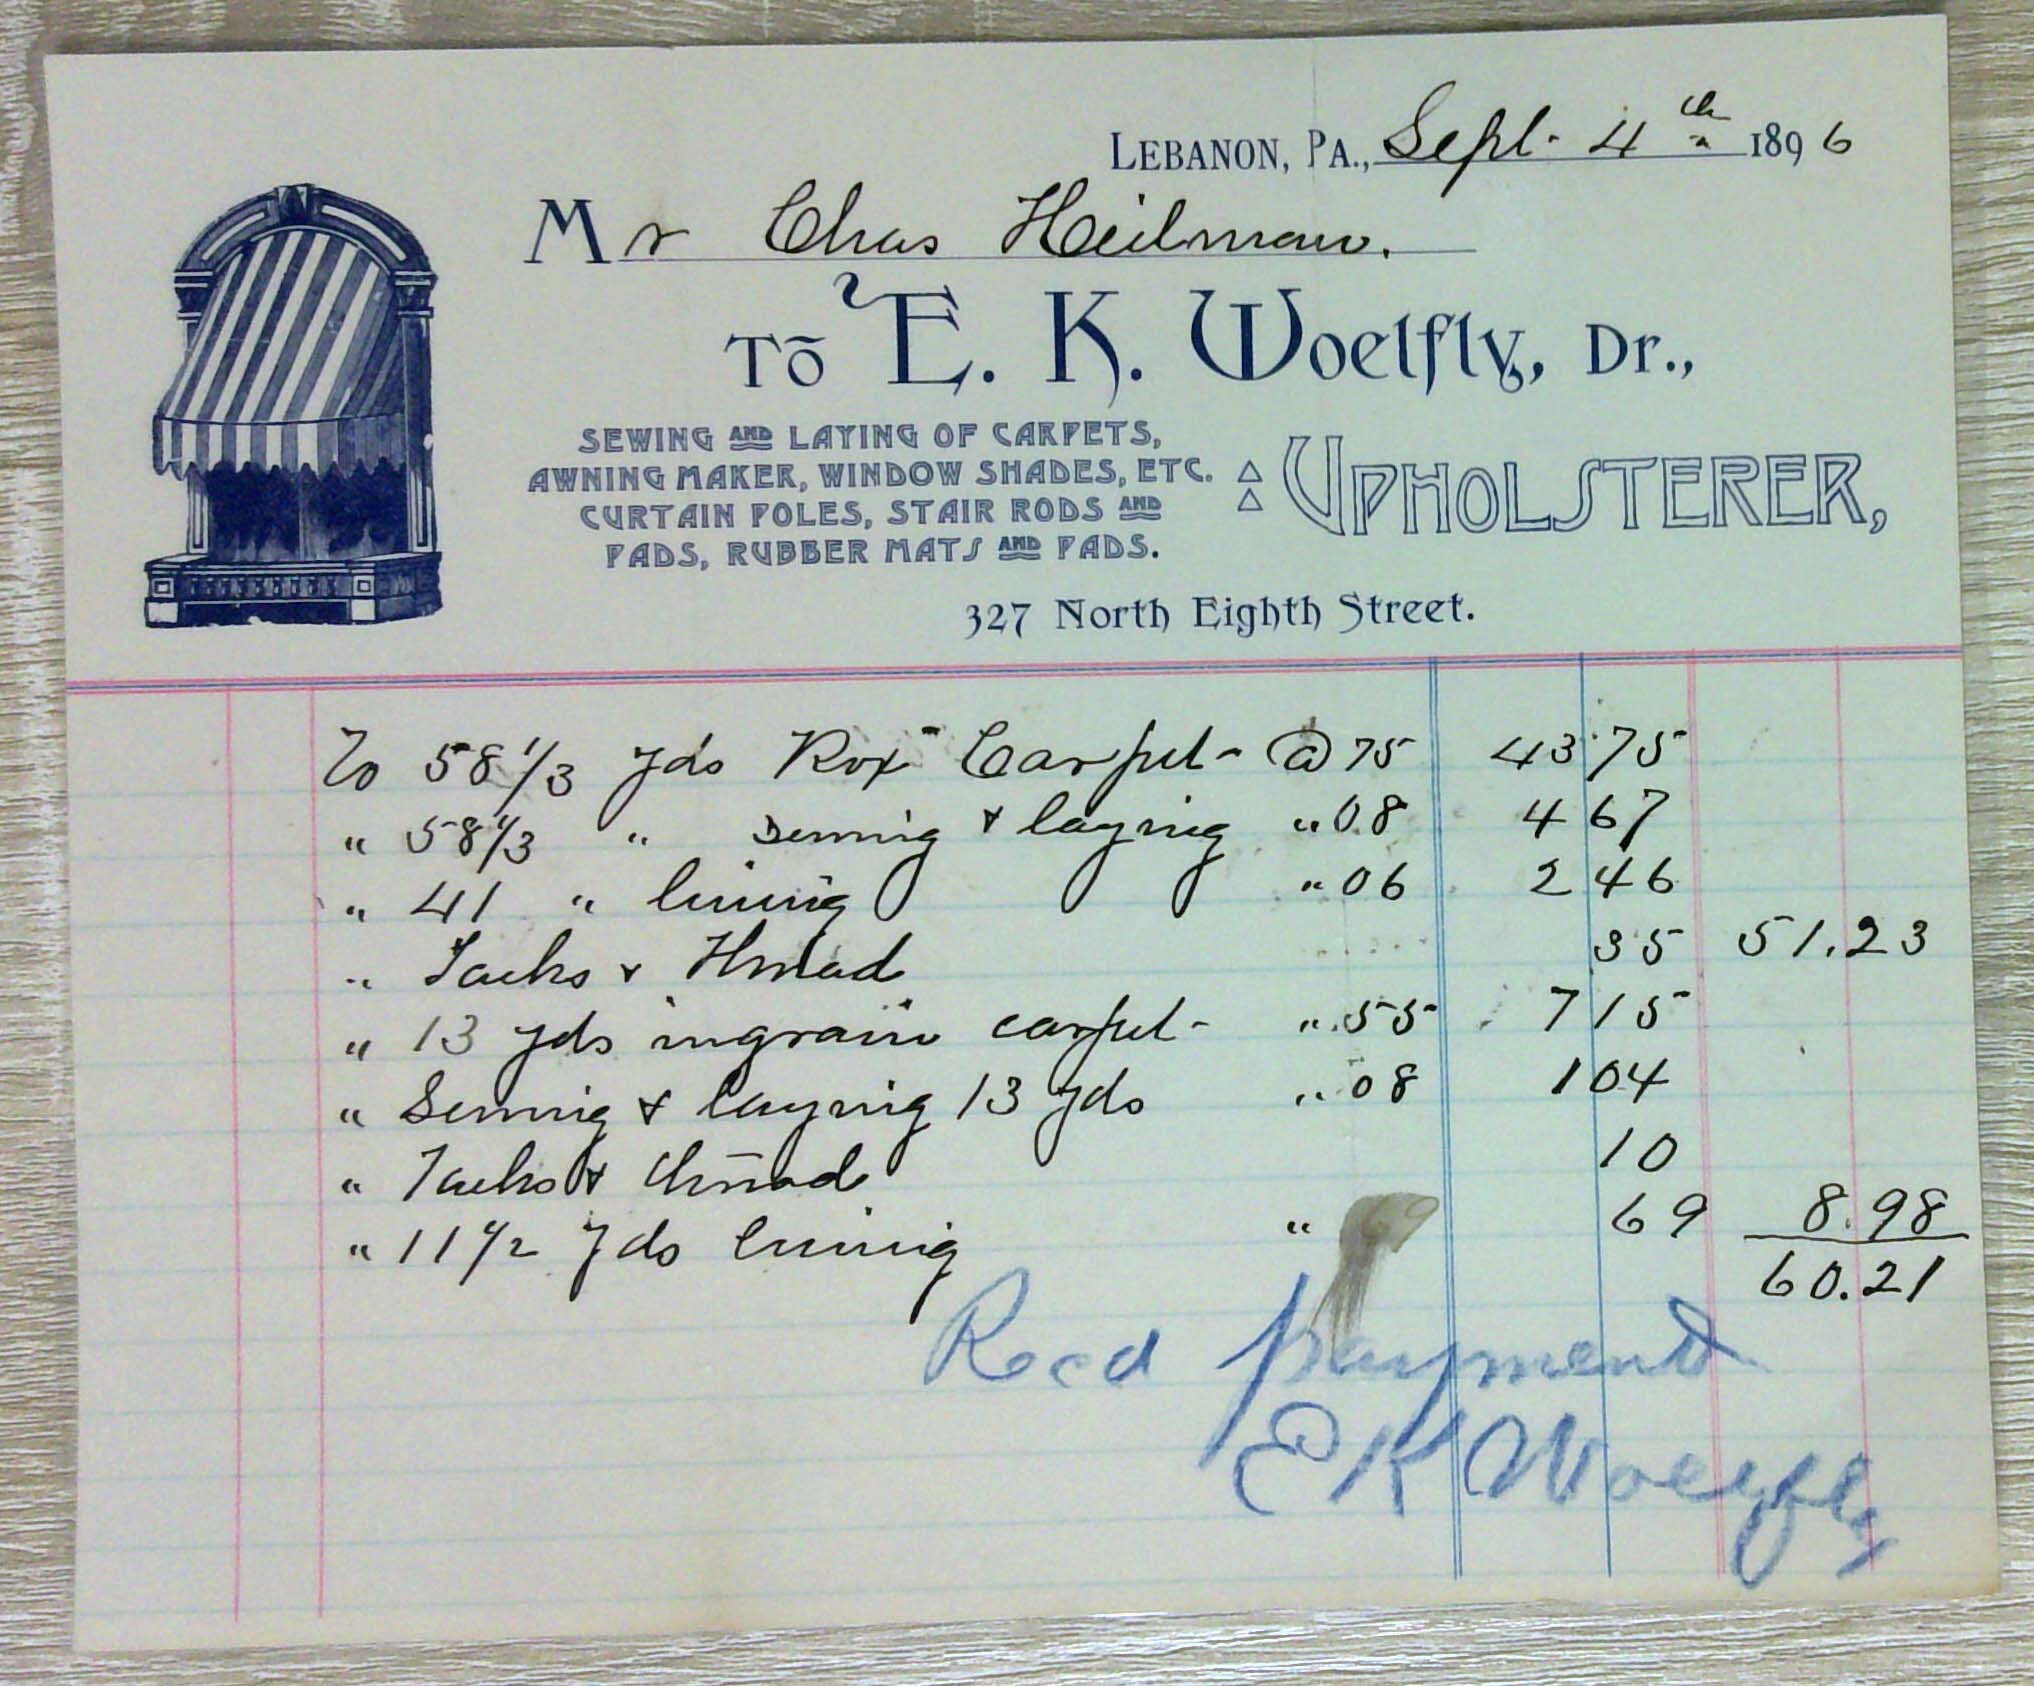 LEBANON, PA., Sept. 4th 1896
Mr Chas Heilman.
TO E. K. Woelfly, Dr.,
SEWING AND LAYING OF CARPETS,
AWNING MAKER, WINDOW SHADES, ETC.
CURTAIN POLES, STAIR RODS AND
PADS, RUBBER MATS AND PADS.
UPHOLSTERER,
327 North Eighth Street.
To 58 1/3 yds Rox Carpet @ 75 43.75
" 58 1/3 " Sewing & laying " 08 4 67
" 41 " lining " 06 2 46
" Tacks & Thread 35 51.23
" 13 yds ingrain carpet " .55 7 15
" Sewing & laying 13 yds " 08 1 04
" Tacks & thread 10
" 11 1/2 yds lining " 69 8.98
60.21
Recd payment
E K Woelfly